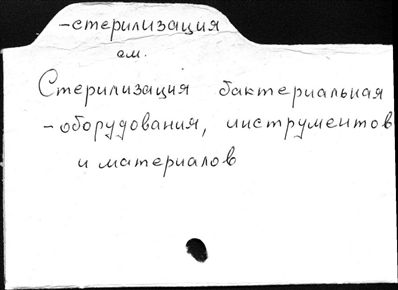 -стерилизация
см.
Стерилизация бактериальная
-оборудования, инструментов
и материалов